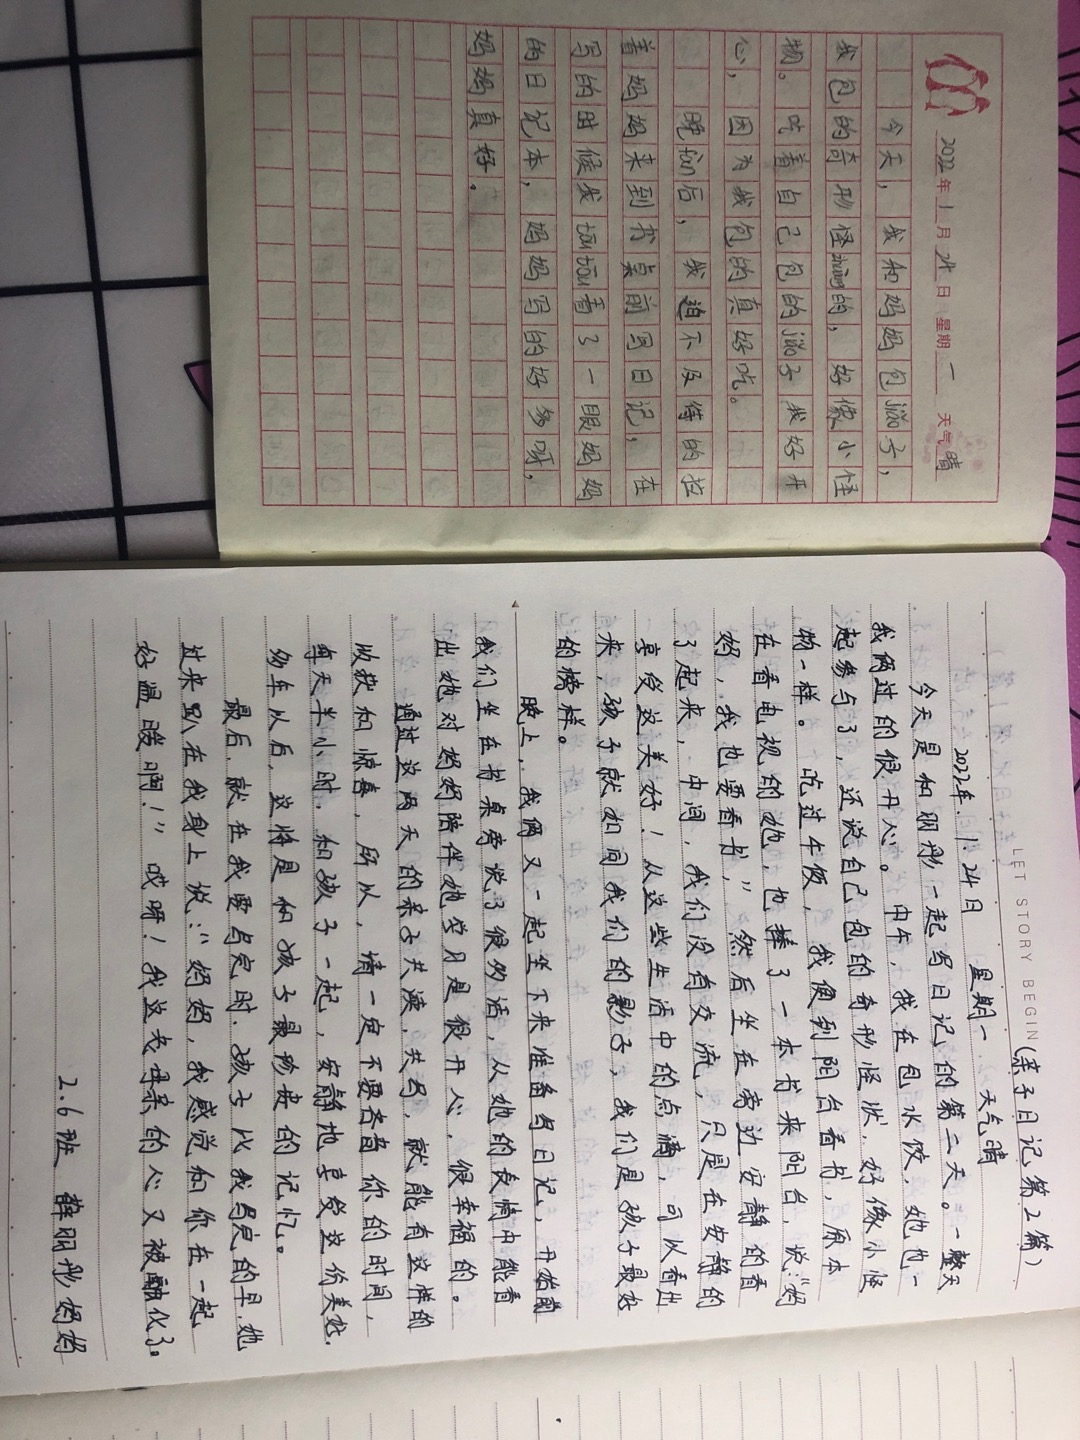 2022年1月24日 星期一 天气晴
今天,我和妈妈包jiao子,
我包的奇形怪zhuang的,好像小怪
物。吃着自己包的jiao子我好开
心,因为我包的真好吃。
晚fan后,我迫不及待的拉
着妈妈来到书桌前写日记,在
写的时候我toutou看了一眼妈妈
的日记本,妈妈写的好多呀,
妈妈真好。
LET STORY BEGIN
(亲子日记第2篇)
2022年.1.24日 星期一 天气晴
今天是和朋彤一起写日记的第二天。一整天
我俩过的很开心。中午,我在包水饺,她也一
起参与了,还说自己包的奇形怪状,好像小怪
物一样。吃过午饭,我便到阳台看书,原本
在看电视的她,也捧了一本书来阳台,说:“妈
妈,我也要看书,”然后坐在旁边安静的看
了起来,中间,我们没有交流,只是在安静的
享受这美好!从这些生活中的点滴,可以看出
来,孩子就如同我们的影子,我们是孩子最好
的榜样。
晚上,我俩又一起坐下来准备写日记,开始前
我们坐在书桌旁说了很多话,从她的表情中能看
出她对妈妈陪伴她岁月是很开心,很幸福的。
通过这两天的亲子共读,共写,就能有这样的
收获和惊喜,所以,请一定不要吝啬你的时间,
每天半小时,和孩子一起,安静地享受这份美好,
多年以后,这将是和孩子最珍贵的记忆。
最后,就在我要写完时,孩子比我写完的早,她
过来趴在我身上说:“妈妈,我感觉和你在一起
好温暖啊!”哎呀!我这老母亲的心又被融化了。
2.6班 薛朋彤妈妈